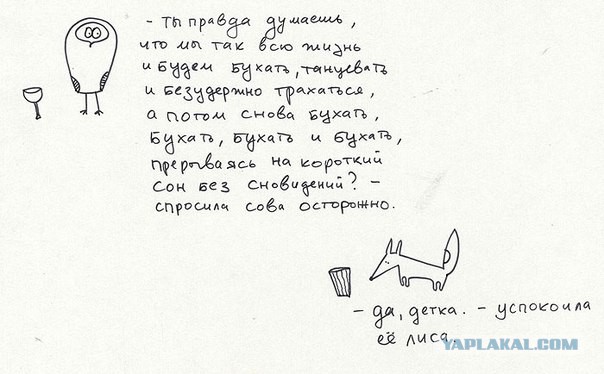 - ты правда думаешь,
что мы так всю жизнь
и будем бухать, танцевать
и безудержно трахаться,
а потом снова бухать,
бухать, бухать и бухать,
прерываясь на короткий
сон без сновидений? -
спросила сова осторожно.
- да, детка. - успокоила
её лиса.
YAPLAKAL.COM